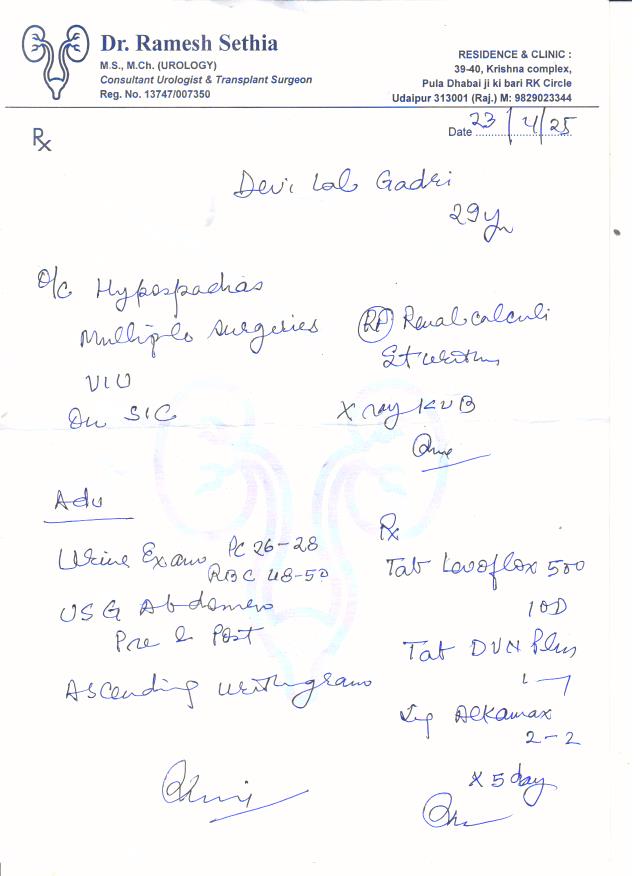 Dr. Ramesh Sethia
M.S., M.Ch. (UROLOGY)
Consultant Urologist & Transplant Surgeon
Reg. No. 13747/007350
RESIDENCE & CLINIC :
39-40, Krishna complex,
Pula Dhabai ji ki bari RK Circle
Udaipur 313001 (Raj.) M: 9829023344
Date 23/4/25
Rx
Devi Lal Gadri
29 yr
O/C Hypospadias
Multiple surgeries
VIU
On SIC
Renal calculi
X ray KUB
Adv
Urine Exam PC 26-28
RBC 48-50
USG Abdomen
Pre & Post
Ascending urethrogram
Rx
Tab Levoflox 500
10D
Tab DVN Plus
1-1
Alkamax
2-2
x 5 day